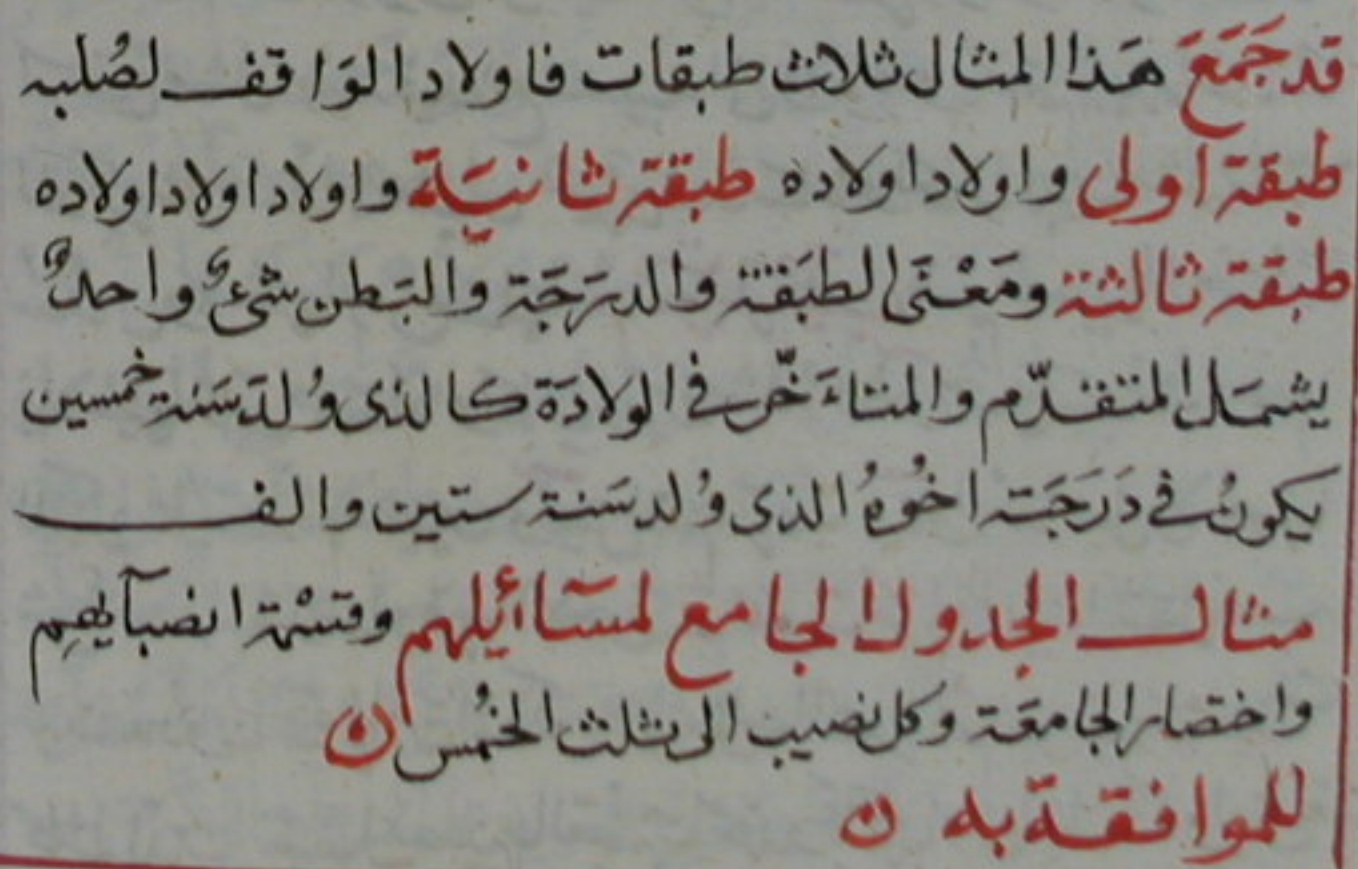 قد جَمَعَ هَذا المثال ثلاث طبقات فاولاد الوَاقف لصُلبه
طبقة اولى واولاد اولاده طبقة ثانيَة واولاد اولاد اولاده
طبقة ثالثة ومَعْنَى الطبَقة والدرَجَة والبَطن شئٌ واحدٌ
يشمَل المتقدّم والمتاءَخّر في الولادَة كالذى وُلدَ سَنة خمسين
يكونُ في دَرَجَته اخُوهُ الذى وُلد سَنة ستين والف
مثال الجدول الجامع لمسَائيلهم وقسْمة انصبآيهِم
واختصار الجامعَة وكل نصيب الى ثلث الخُمس ن
للموافقة به ن